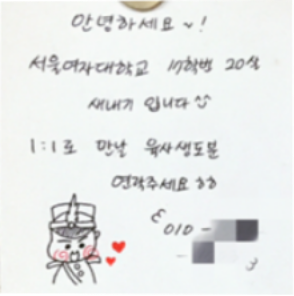 안녕하세요~!
서울여자대학교 17학번 20살
새내기 입니다^^
1:1로 만날 육사생도분
연락주세요 ㅎㅎ
010-
-